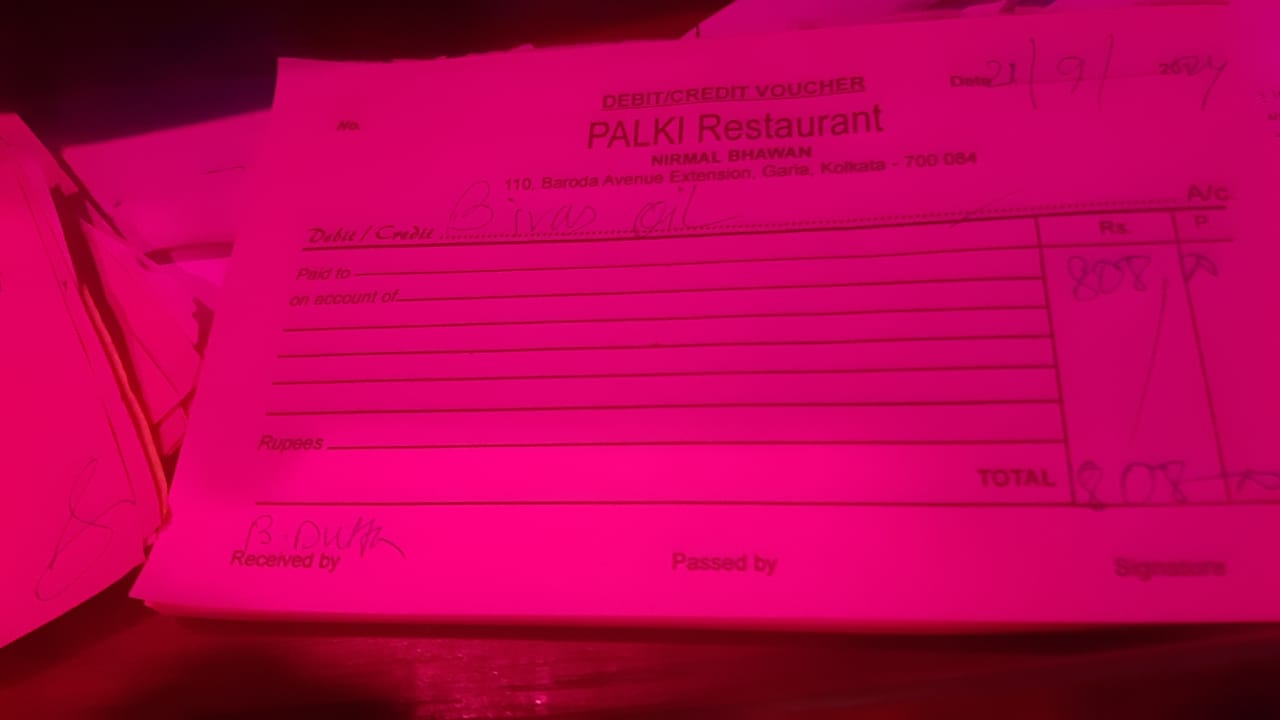 DEBIT/CREDIT VOUCHER
Date 21/9/2024
No.
PALKI Restaurant
NIRMAL BHAWAN
110, Baroda Avenue Extension, Garia, Kolkata - 700 084
Debit / Credit Bivas oil A/c
Rs. P.
Paid to 808
on account of
Rupees
TOTAL 808
B. Dutta
Received by Passed by Signature